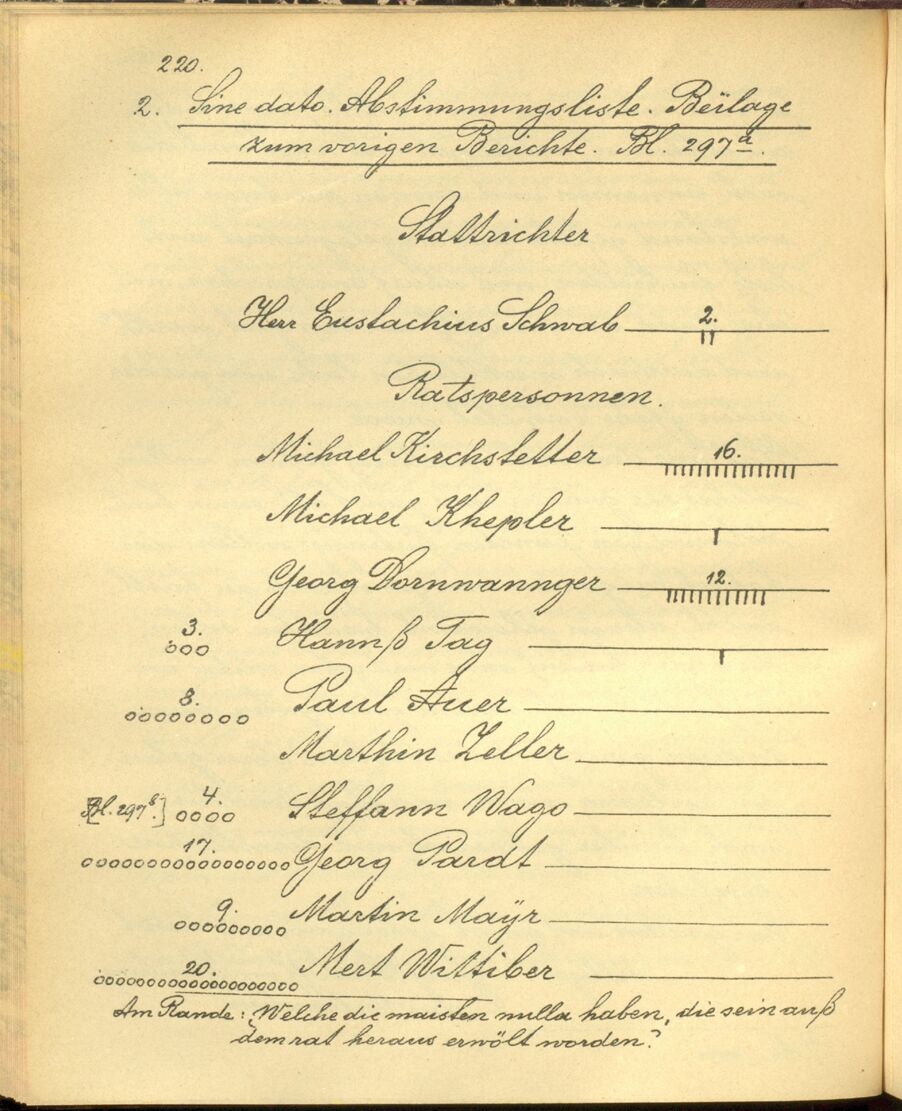 220.
2. Sine dato. Abstimmungsliste. Beilage
zum vorigen Berichte. Bl. 297a.
Stattrichter
Herr Eustachius Schwab 2.
Ratspersonnen.
Michael Kirchstetter 16.
Michael Khepler
Georg Dornwannger 12.
3. Hannß Tag
8. Paul Auer
Marthin Zeller
[Bl. 297b.] 4. Steffann Wago
17. Georg Pardt
9. Martin Mayr
20. Mert Wittiber
Am Rande: „Welche die maisten nulla haben, die sein auß
dem rat heraus erwölt worden."